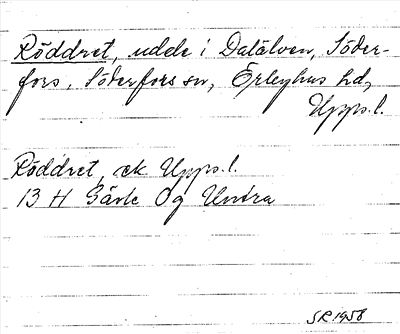 Röddret, udde i Dalälven, Söder-
fors, Söderfors sn, Örbyhus hd,
Upps. l.
Röddret, ek Upps. l.
13 H Gävle Og Untra
SR 1958